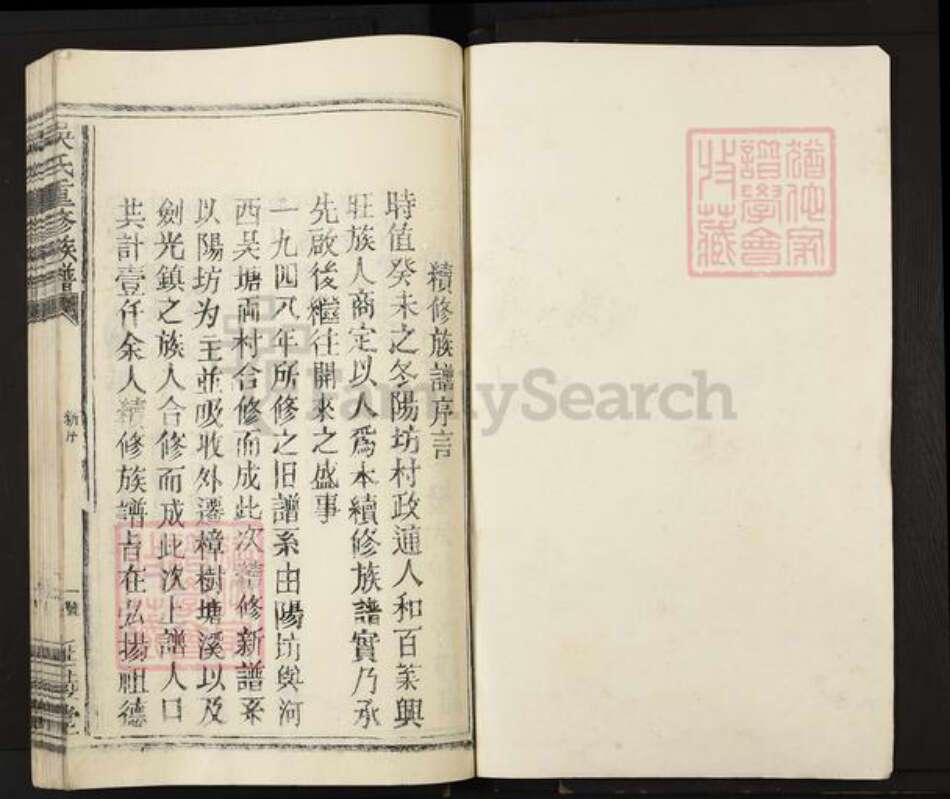 續修族譜序言
時值癸未之冬陽坊村政通人和百業興
旺族人商定以人為本續修族譜實乃承
先啟後繼往開來之盛事
一九四八年所修之旧譜系由陽坊與河
西吴塘兩村合修而成此次續修新譜系
以陽坊为主並吸收外遷樟樹塘溪以及
劍光鎮之族人合修而成此次上譜人口
共計壹仟余人續修族譜旨在弘揚祖德
吳氏重修族譜
新序
一號
FamilySearch